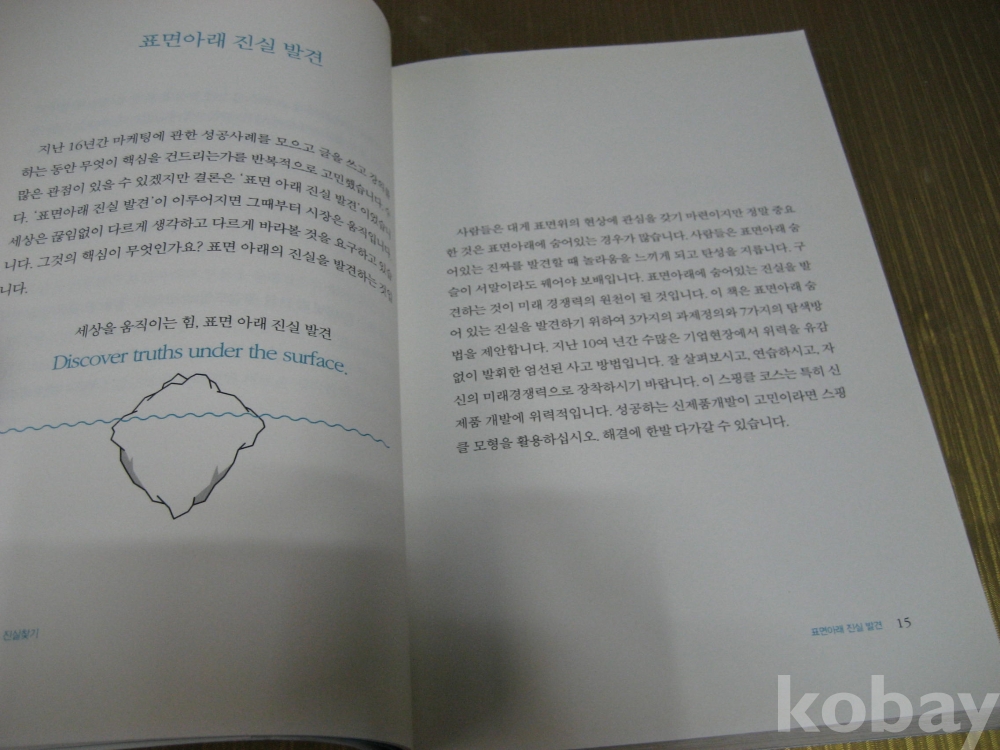 표면아래 진실 발견
지난 16년간 마케팅에 관한 성공사례를 모으고 글을 쓰고 강의를
하는 동안 무엇이 핵심을 건드리는가를 반복적으로 고민했습니다. 수
많은 관점이 있을 수 있겠지만 결론은 '표면 아래 진실 발견'이었습니
다. '표면아래 진실 발견'이 이루어지면 그때부터 시장은 움직입니다.
세상은 끊임없이 다르게 생각하고 다르게 바라볼 것을 요구하고 있습
니다. 그것의 핵심이 무엇인가요? 표면 아래의 진실을 발견하는 것입
니다.
세상을 움직이는 힘, 표면 아래 진실 발견
Discover truths under the surface.
진실찾기
사람들은 대게 표면위의 현상에 관심을 갖기 마련이지만 정말 중요
한 것은 표면아래에 숨어있는 경우가 많습니다. 사람들은 표면아래 숨
어있는 진짜를 발견할 때 놀라움을 느끼게 되고 탄성을 지릅니다. 구
슬이 서말이라도 꿰어야 보배입니다. 표면아래에 숨어있는 진실을 발
견하는 것이 미래 경쟁력의 원천이 될 것입니다. 이 책은 표면아래 숨
어 있는 진실을 발견하기 위하여 3가지의 과제정의와 7가지의 탐색방
법을 제안합니다. 지난 10여 년간 수많은 기업현장에서 위력을 유감
없이 발휘한 엄선된 사고 방법입니다. 잘 살펴보시고, 연습하시고, 자
신의 미래경쟁력으로 장착하시기 바랍니다. 이 스핑클 코스는 특히 신
제품 개발에 위력적입니다. 성공하는 신제품개발이 고민이라면 스핑
클 모형을 활용하십시오. 해결에 한발 다가갈 수 있습니다.
표면아래 진실 발견 15
kobay